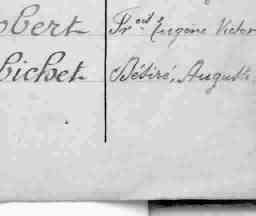 obert Fr.çois Eugène Victor
bichet Désiré, Auguste